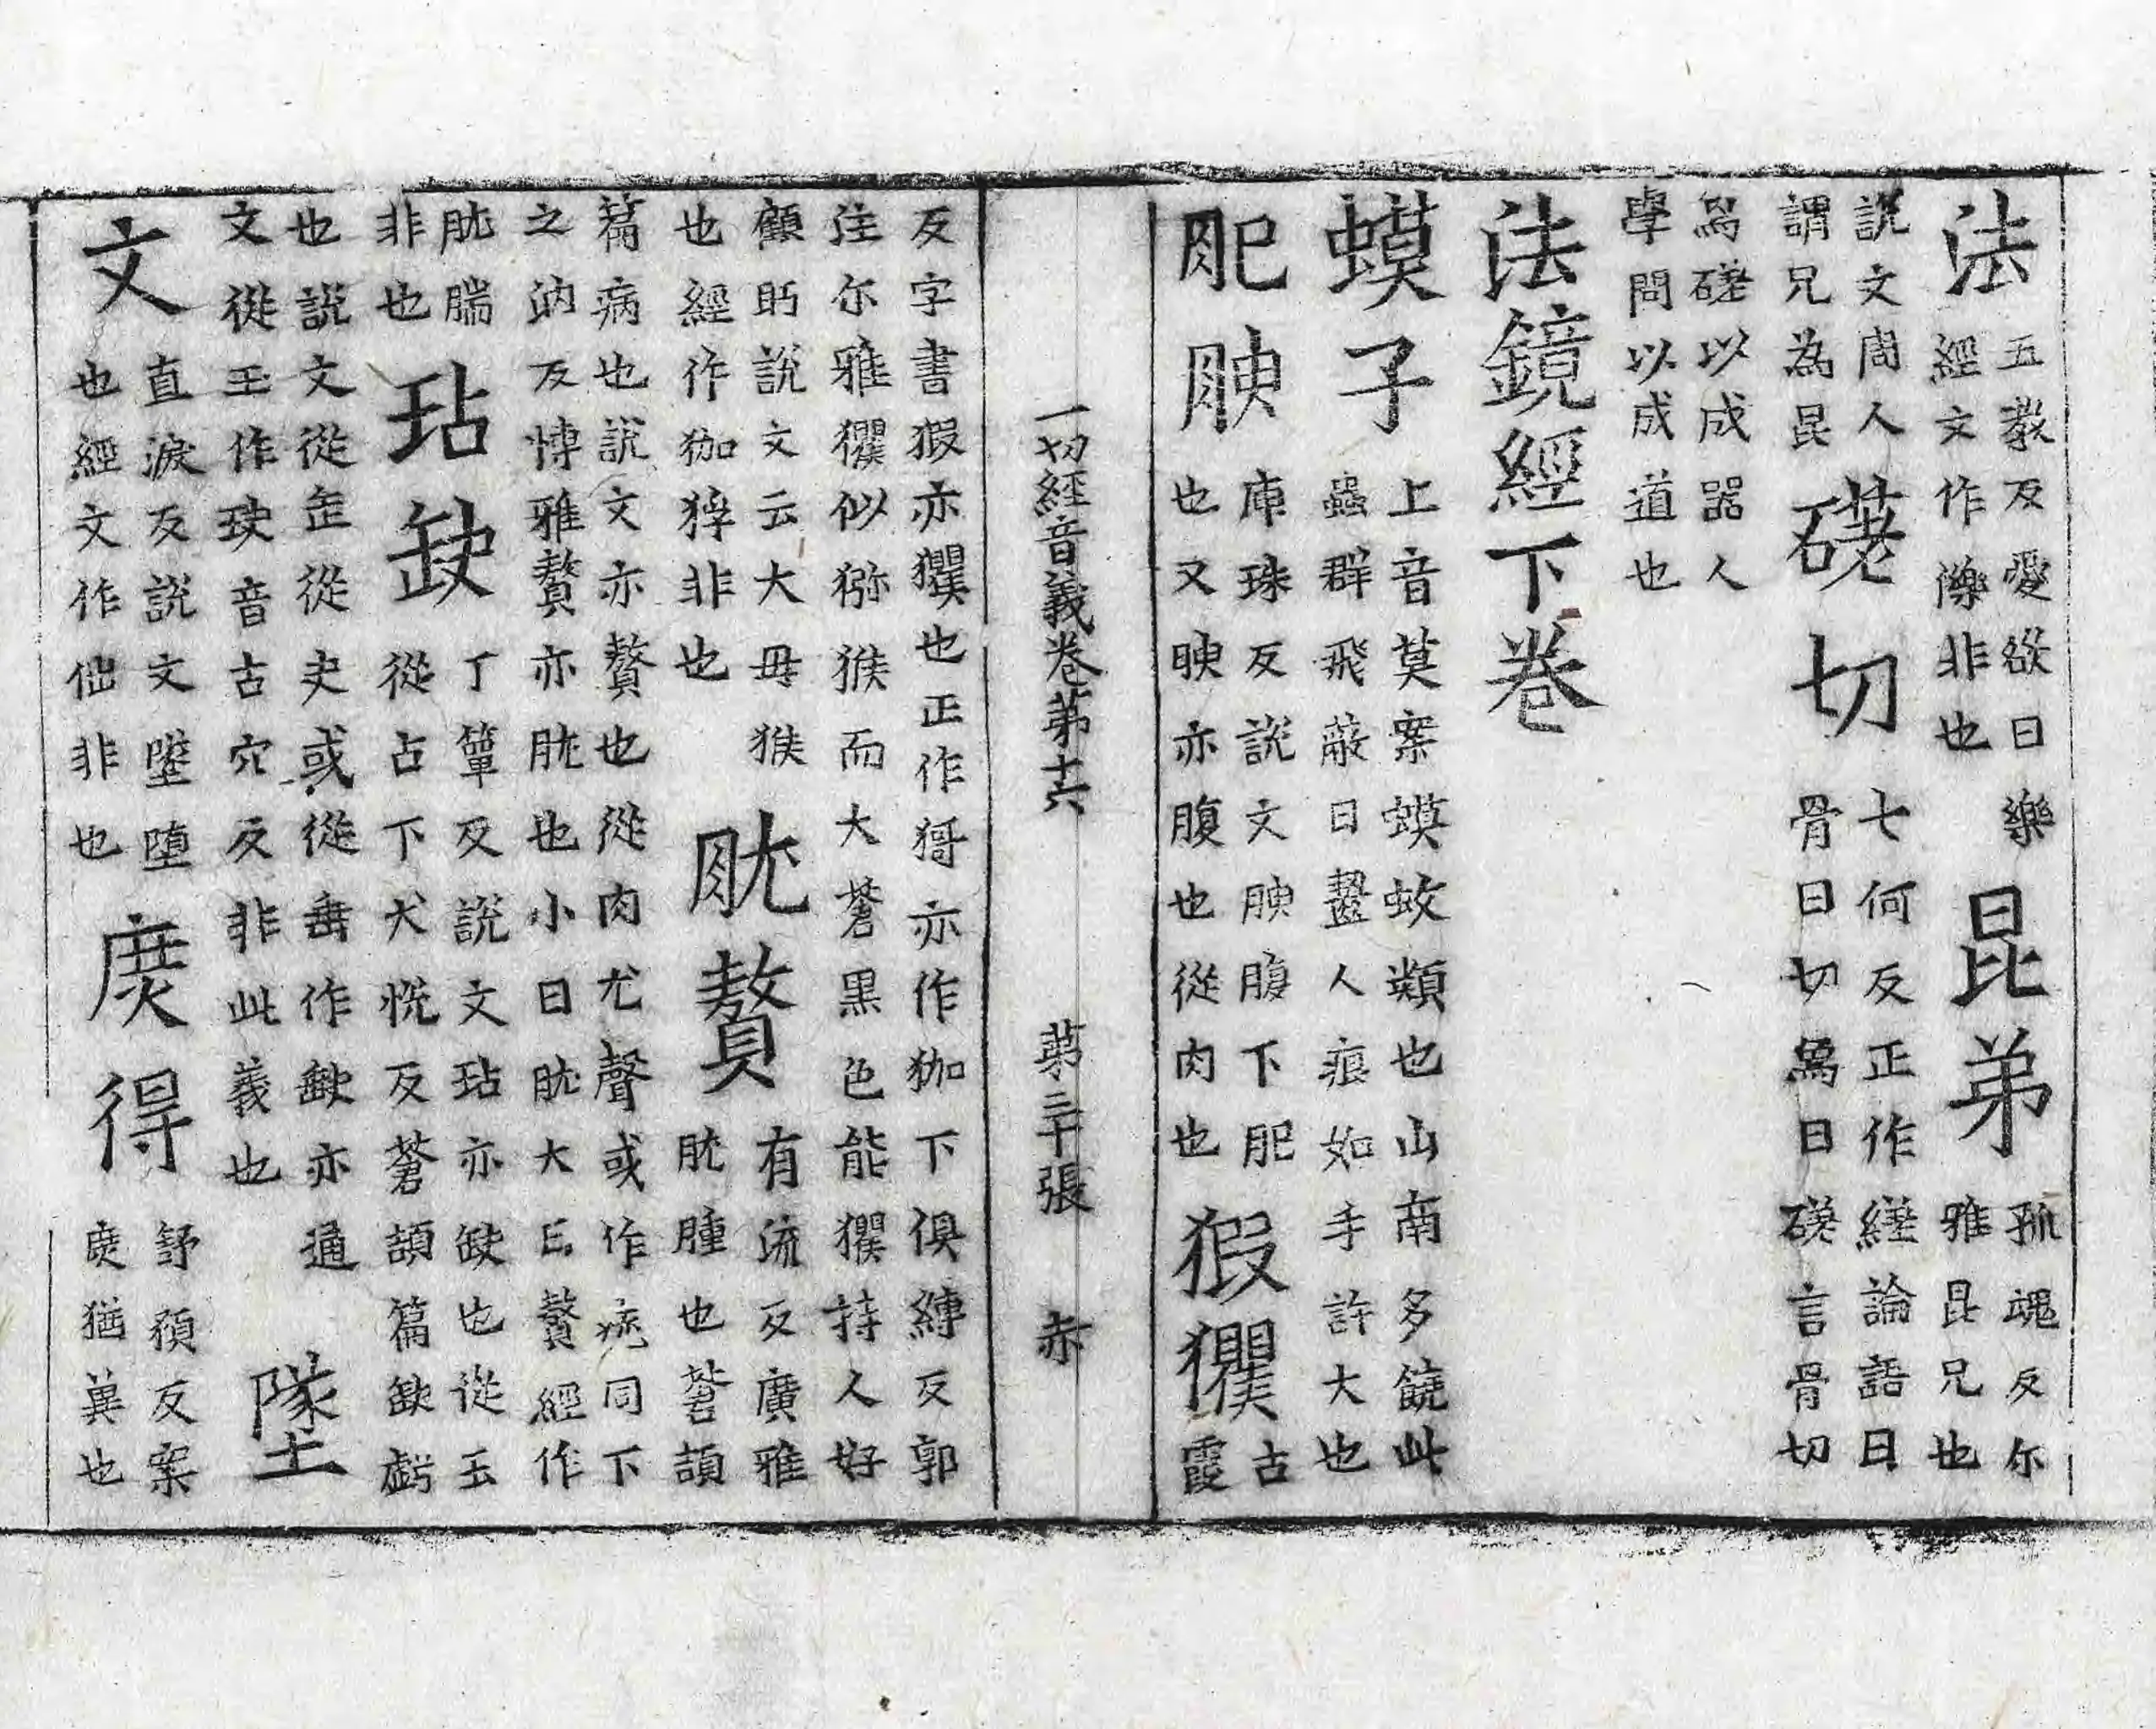 法五教反愛欲曰樂經文作㦡非也昆弟孤魂反尔雅昆兄也
説文周人謂兄為昆磋切七何反正作縒論語曰骨曰切爲曰磋言骨切
爲磋以成器人學問以成道也
法鏡經下卷
蟆子上音莫案蟆蚊類也山南多饒此蟲群飛蔽日齧人痕如手許大也
肥腴庾珠反説文腴腹下肥也又腴亦腹也從肉也猳玃古霞
一切經音義卷第十六 第三十張 赤
反字書猳亦玃也正作𤠙亦作㹢下俱縛反郭
注尔雅玃似獼猴而大蒼黑色能玃持人好
顧眄説文云大母猴也經作㹢猙非也肬贅有流反廣雅肬腫也蒼頡
篇病也説文亦贅也從肉尤聲或作疣同下之汭反博雅贅亦肬也小曰肬大曰贅經作
肬腨非也玷缺丁簟反説文玷亦缺也從玉從占下犬悅反蒼頡篇缺虧
也説文從缶從夬或從垂作𡙇亦通文從玉作玦音古穴反非此義也墜
文直淚反説文墜墮也經文作㑁非也庶得舒預反案庶猶冀也